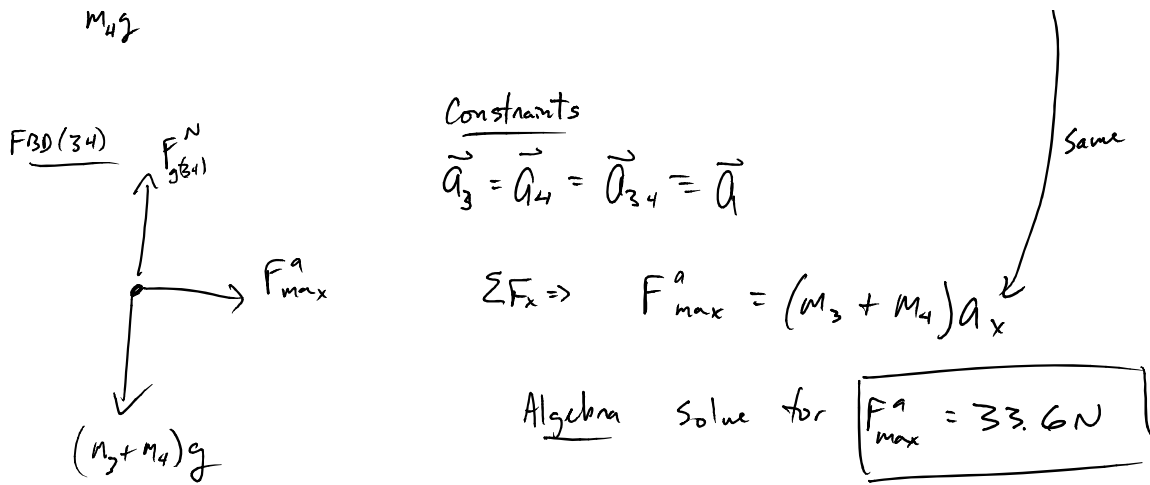 m₄g
FBD(34)
F^N_g(34)
F^a_max
(m₃+m₄)g
Constraints
a⃗₃ = a⃗₄ = a⃗₃₄ ≡ a⃗
ΣFₓ ⇒ F^a_max = (m₃ + m₄)aₓ
Same
Algebra solve for F^a_max = 33.6N